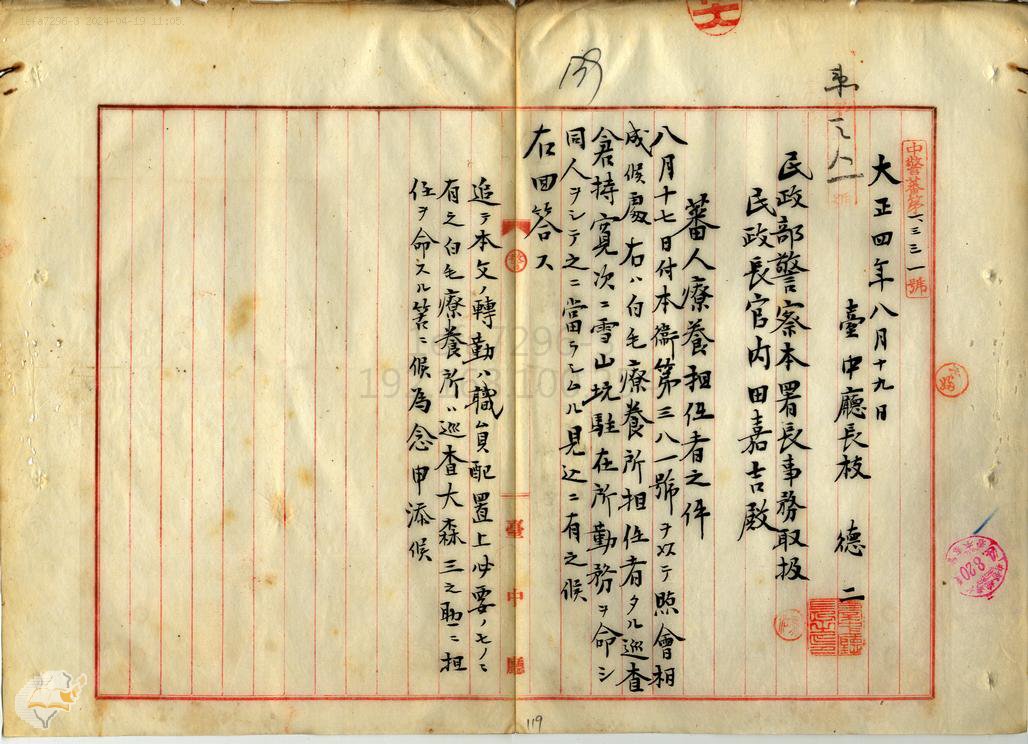 1efa7296-3 2024-04-19 11:05
中警蕃第一、三三一號
大正四年八月十九日
臺中廳長枝 德二
民政部警察本署長事務取扱
民政長官内田嘉吉殿
蕃人療養担任者之件
八月十七日付本衛第三八一號ヲ以テ照會相
成候處右ハ白毛療養所担任者タル巡査
倉持寬次ニ雪山坑駐在所勤務ヲ命シ
同人ヲシテ之ニ當ラシムル見込ニ有之候
右回答ス
追テ本文ノ轉勤ハ職員配置上必要ノモノニ
有之白毛療養所ハ巡査大森三之助ニ担
任ヲ命スル筈ニ候為念申添候
臺中廳
8.20
119